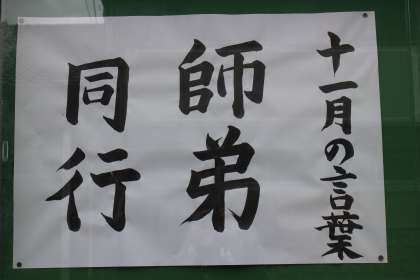 十一月の言葉
師弟
同行